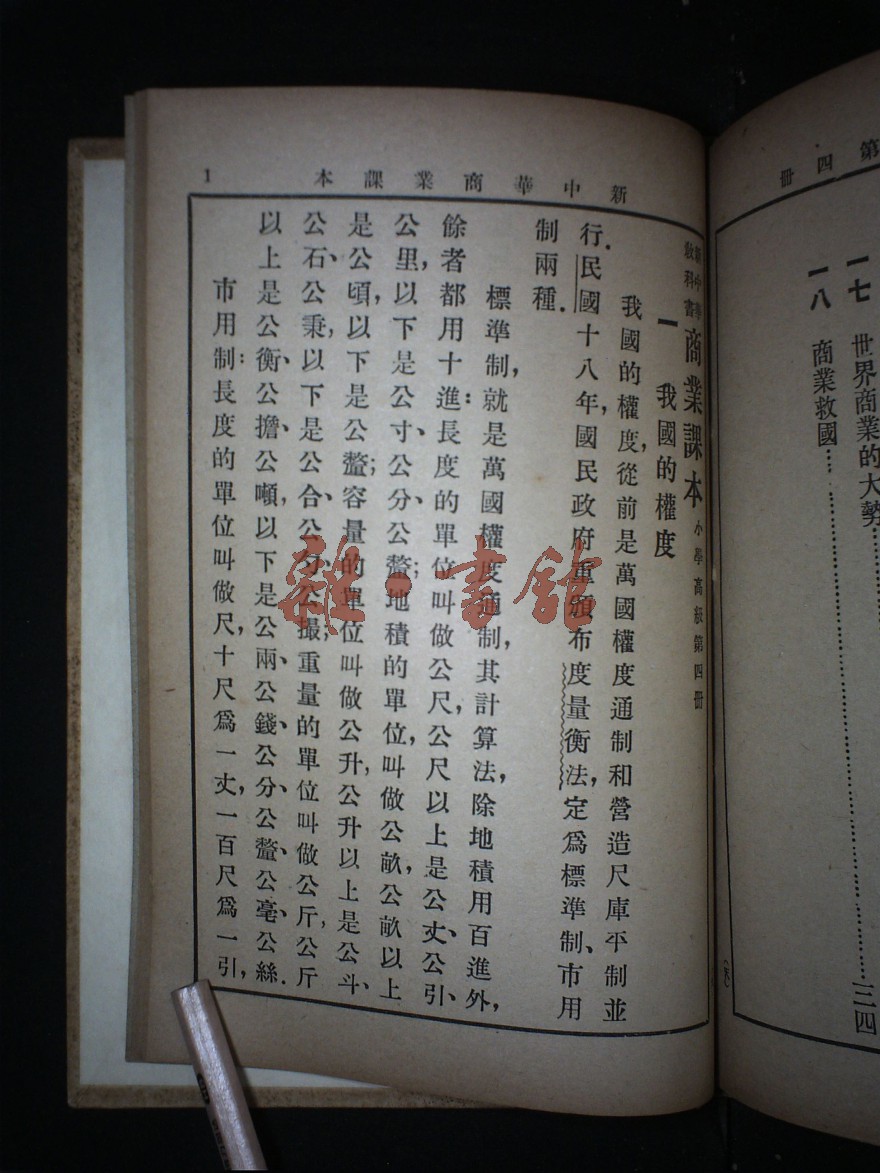 第四冊
一七 世界商業的大勢
一八 商業救國……三四
(完)
新中華商業課本
1
新中華
教科書
商業課本 小學高級第四冊
一 我國的權度
我國的權度，從前是萬國權度通制和營造尺庫平制並
行．民國十八年，國民政府重頒布度量衡法，定爲標準制、市用
制兩種．
標準制，就是萬國權度通制，其計算法，除地積用百進外，
餘者都用十進：長度的單位叫做公尺，公尺以上是公丈、公引、
公里，以下是公寸、公分、公釐；地積的單位，叫做公畝，公畝以上
是公頃，以下是公釐；容量的單位叫做公升，公升以上是公斗、
公石、公秉，以下是公合、公勺、公撮；重量的單位叫做公斤，公斤
以上是公衡、公擔、公噸，以下是公兩、公錢、公分、公釐、公毫、公絲．
市用制：長度的單位叫做尺，十尺爲一丈，一百尺爲一引，
雜·書館